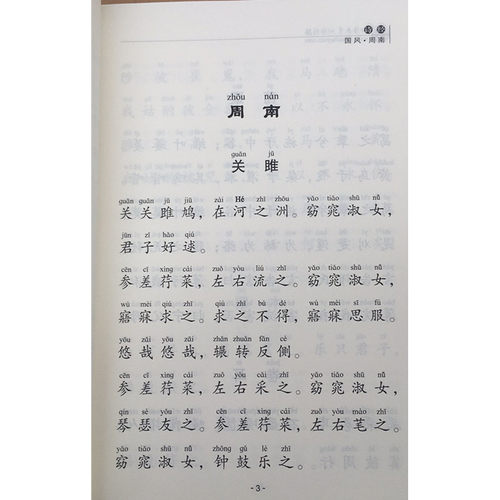 诗经
国风·周南
zhōu nán
周南
guān jū
关雎
guān guān jū jiū zài Hé zhī zhōu yǎo tiǎo shū nǚ
关关雎鸠，在河之洲。窈窕淑女，
jūn zǐ hǎo qiú
君子好逑。
cēn cī xìng cài zuǒ yòu liú zhī yǎo tiǎo shū nǚ
参差荇菜，左右流之。窈窕淑女，
wù mèi qiú zhī qiú zhī bù dé wù mèi sī fú
寤寐求之。求之不得，寤寐思服。
yōu zāi yōu zāi zhǎn zhuǎn fǎn cè
悠哉悠哉，辗转反侧。
cēn cī xìng cài zuǒ yòu cǎi zhī yǎo tiǎo shū nǚ
参差荇菜，左右采之。窈窕淑女，
qín sè yǒu zhī cēn cī xìng cài zuǒ yòu mào zhī
琴瑟友之。参差荇菜，左右芼之。
yǎo tiǎo shū nǚ zhōng gǔ lè zhī
窈窕淑女，钟鼓乐之。
- 3 -